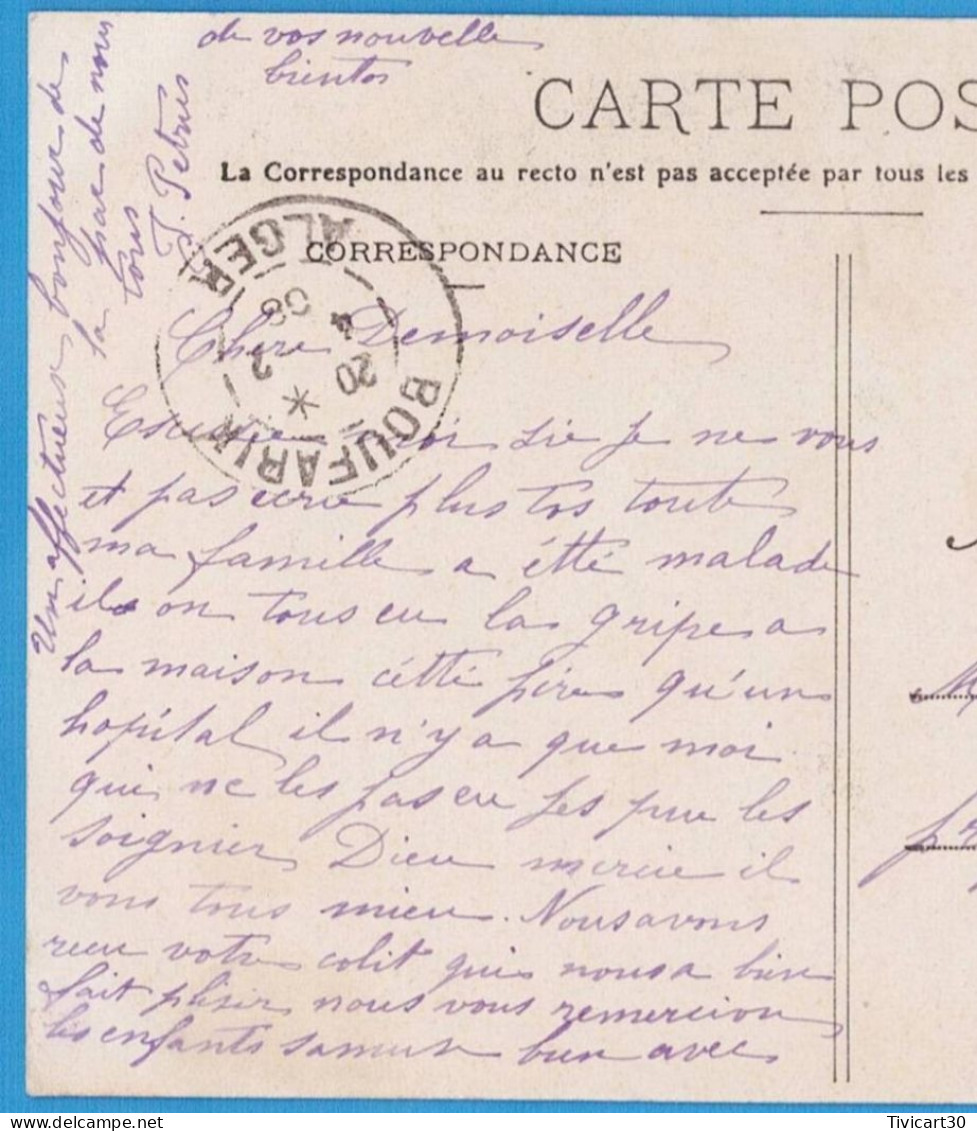 de vos nouvelle
bientos
CARTE POS
La Correspondance au recto n'est pas acceptée par tous les
CORRESPONDANCE
BOUFARIK
ALGER
20
4
08
Chere Demoiselle
Excuse moi sie je ne vous
et pas ecrie plus tos toute
ma famille a étté malade
il on tous eu la gripe a
la maison cétté pire qu'un
hopital il n'y a que moi
qui ne les pas eu jes pue les
soignier Dieu mercie il
vons tous mieu. Nous avons
recu votre colit qui nous a bien
fait plisir nous vous remercion
les enfants samuse bien avec
Un affectueux bonjour de
la par de nous
tous
J. Petrus
Tivicart30